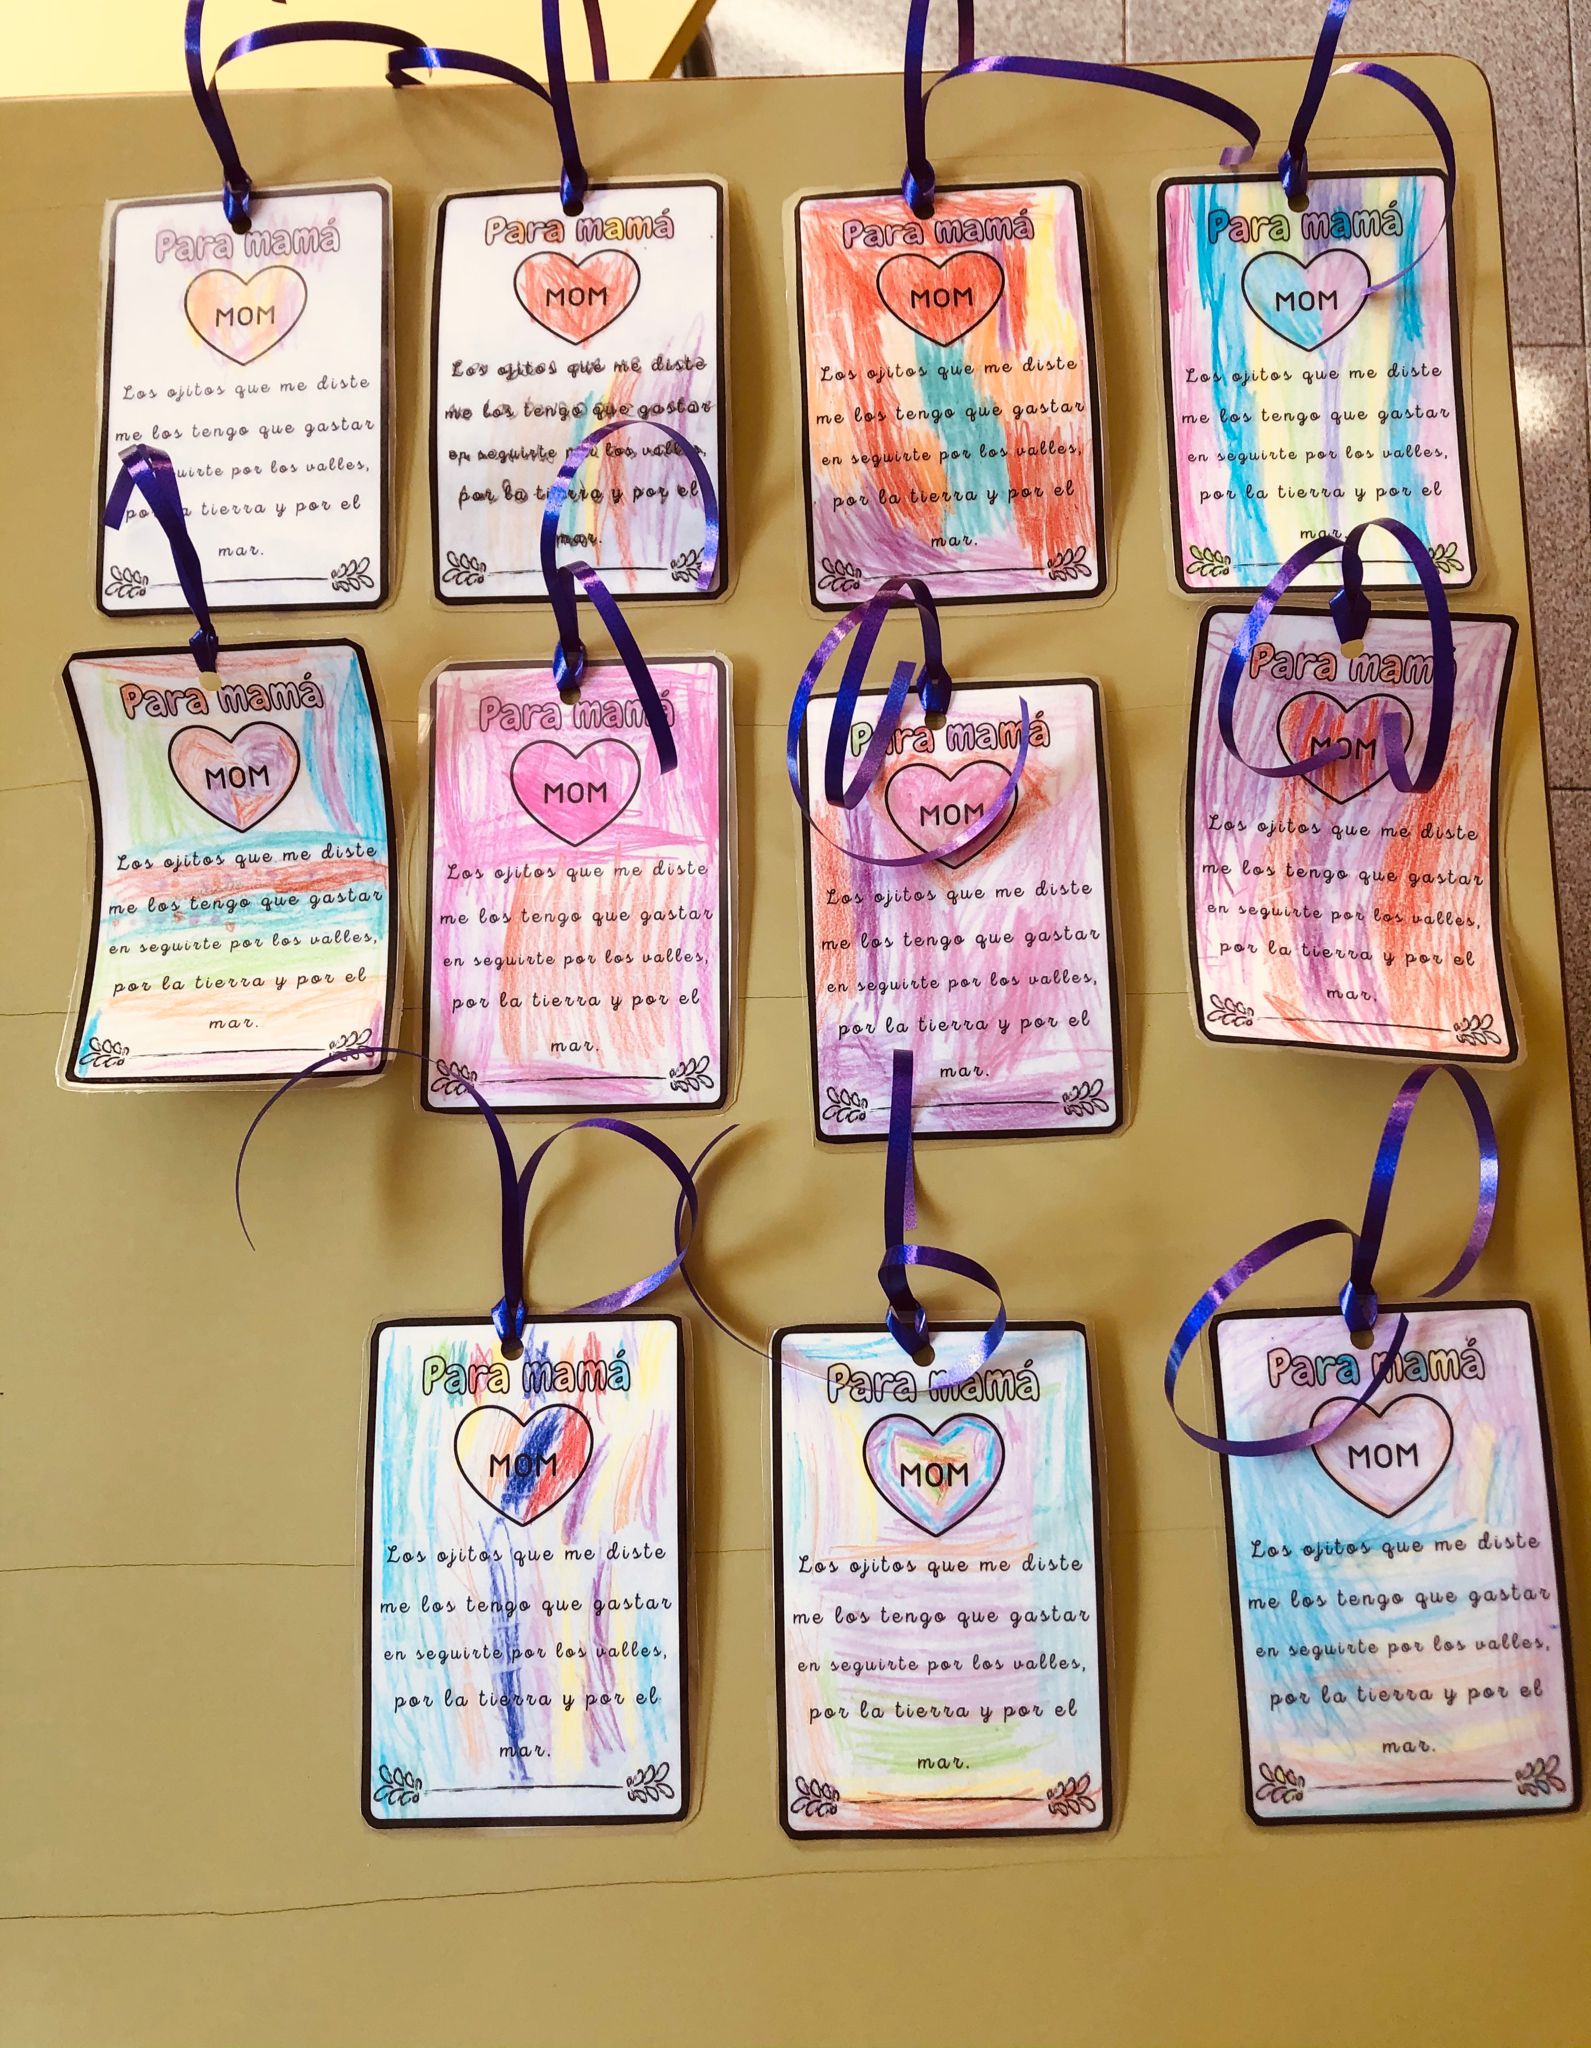 Para mamá
MOM
Los ojitos que me diste
me los tengo que gastar
uirte por los valles,
la tierra y por el
mar.
Para mamá
MOM
Los ojitos que me diste
me los tengo que gastar
en seguirte por los valles,
por la tierra y por el
mar.
Para mamá
MOM
Los ojitos que me diste
me los tengo que gastar
en seguirte por los valles,
por la tierra y por el
mar.
Para mamá
MOM
Los ojitos que me diste
me los tengo que gastar
en seguirte por los valles,
por la tierra y por el
mar.
Para mamá
MOM
Los ojitos que me diste
me los tengo que gastar
en seguirte por los valles,
por la tierra y por el
mar.
Para mamá
MOM
Los ojitos que me diste
me los tengo que gastar
en seguirte por los valles,
por la tierra y por el
mar.
Para mamá
MOM
Los ojitos que me diste
me los tengo que gastar
en seguirte por los valles,
por la tierra y por el
mar.
Para mamá
MOM
Los ojitos que me diste
me los tengo que gastar
en seguirte por los valles,
por la tierra y por el
mar.
Para mamá
MOM
Los ojitos que me diste
me los tengo que gastar
en seguirte por los valles,
por la tierra y por el
mar.
Para mamá
MOM
Los ojitos que me diste
me los tengo que gastar
en seguirte por los valles,
por la tierra y por el
mar.
Para mamá
MOM
Los ojitos que me diste
me los tengo que gastar
en seguirte por los valles,
por la tierra y por el
mar.